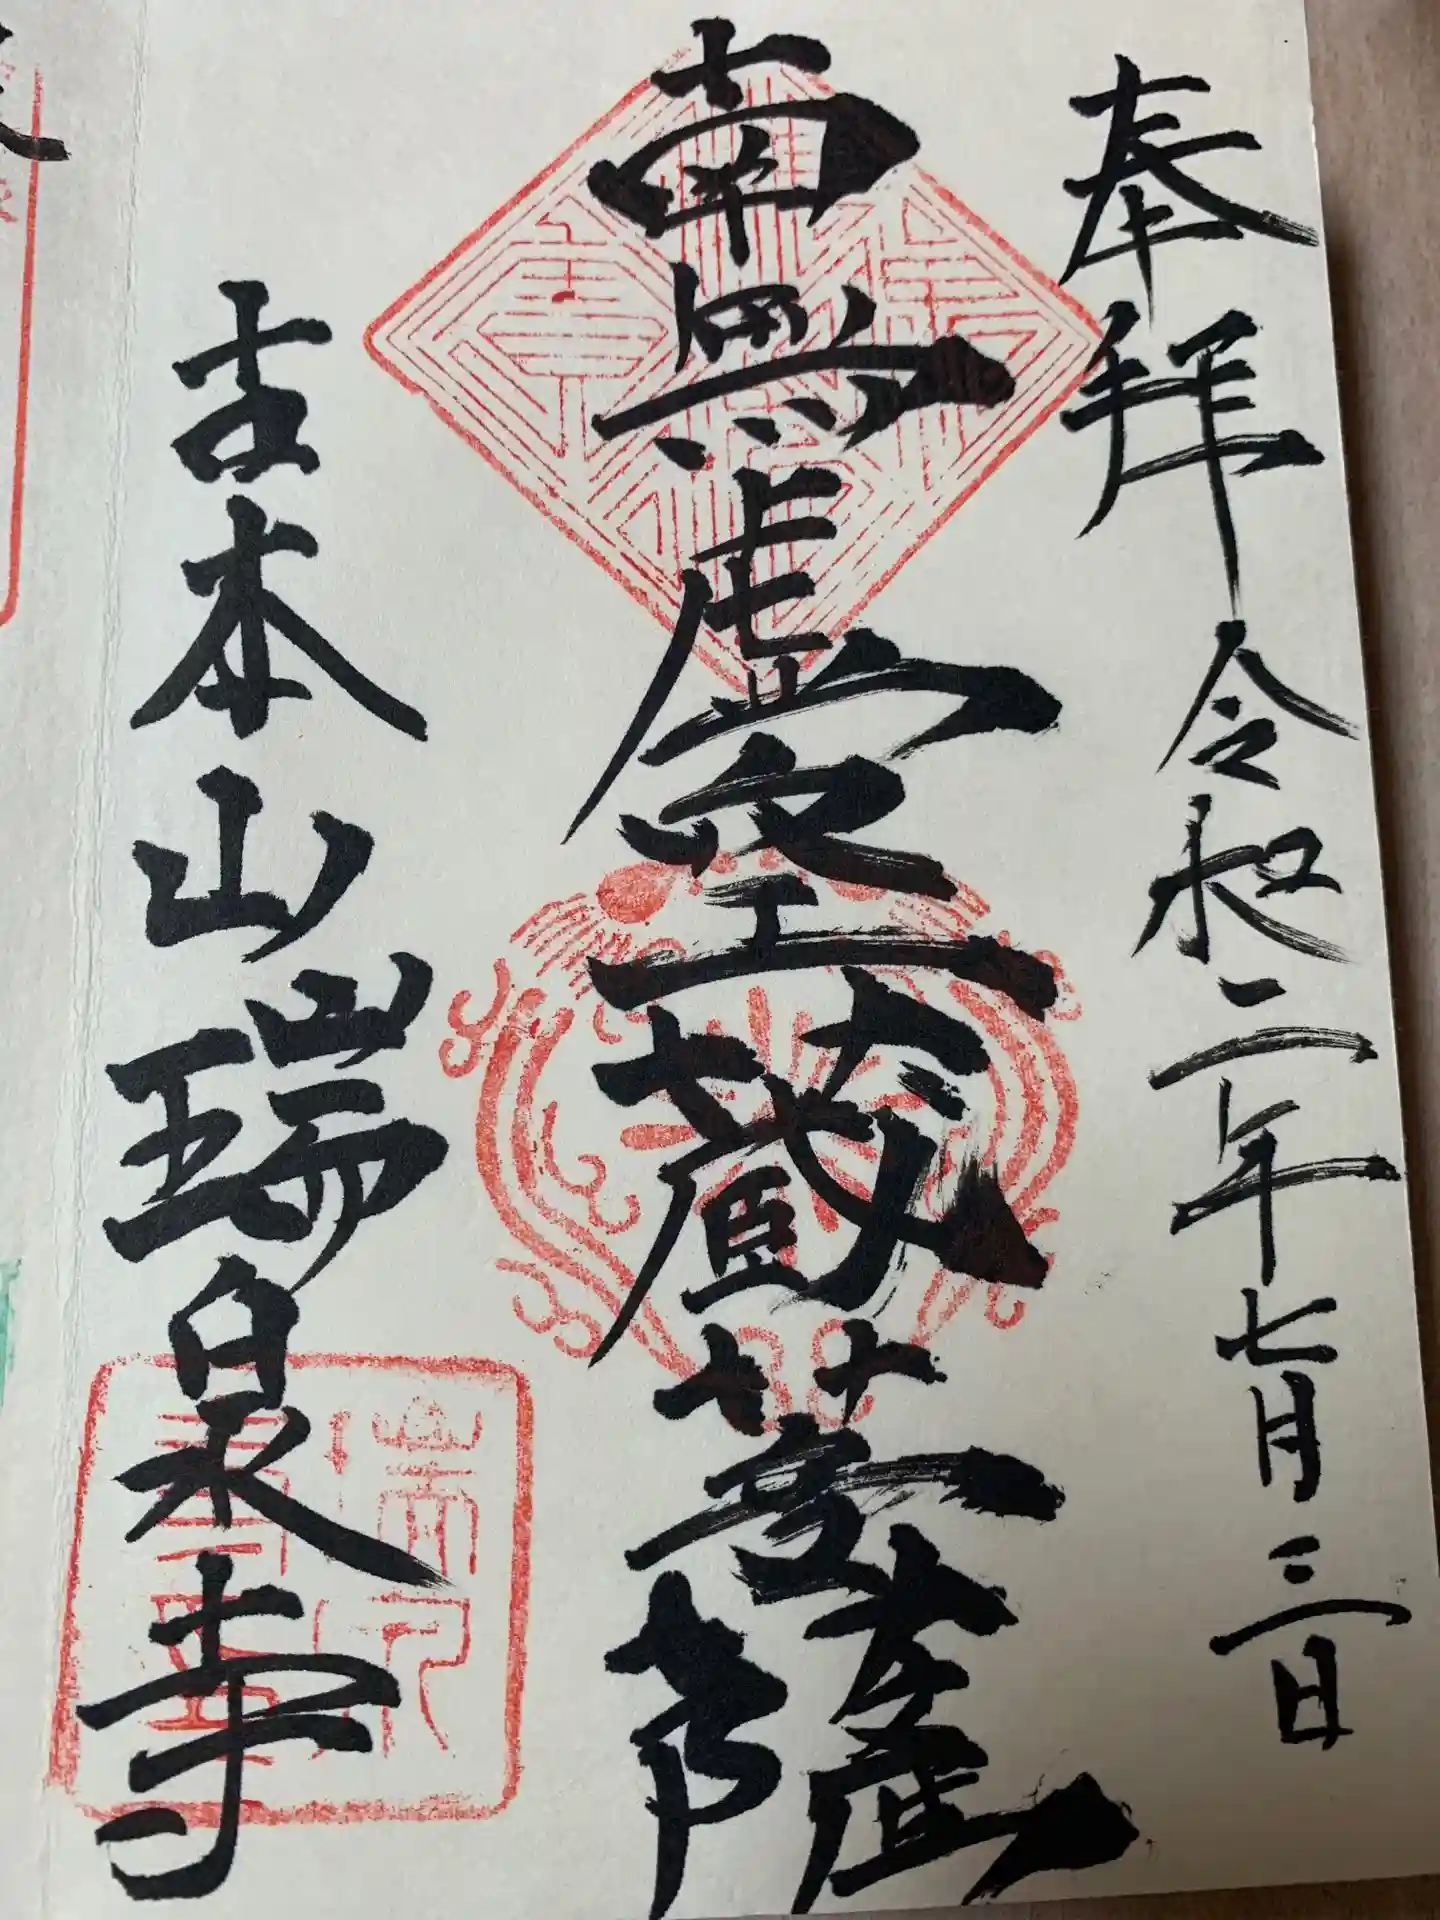 奉拝 令和二年七月三日
南無虚空蔵菩薩
吉本山瑞泉寺